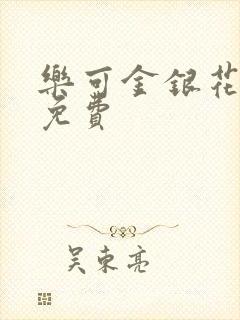 樂可金銀花
免費
吴東亮